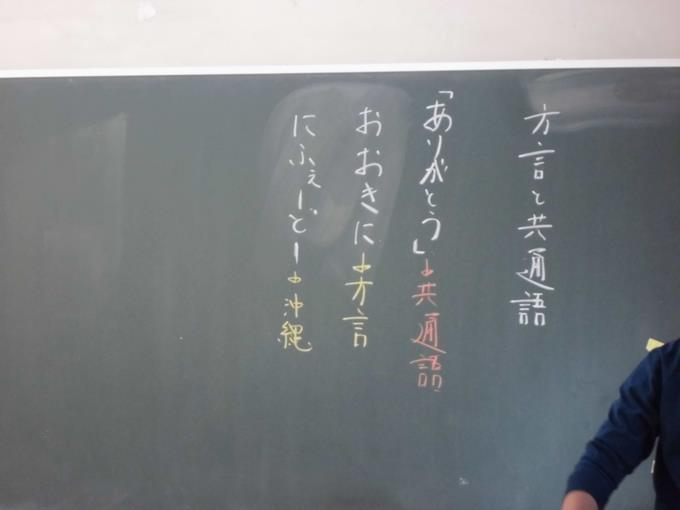 方言と共通語
「ありがとう」→共通語
おおきに→方言
にふぇーどー→沖縄